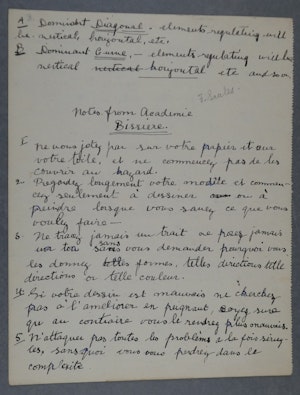 A Dominant Diagonal. elements regulating will
be vertical, horizontal, etc.
B Dominant Curve, - elements regulating will be
vertical vertical horizontal etc and so on
F. Bartes
Notes from Academie
Bissiere.
1. ne vous jetez pas sur votre papier et sur
votre toile, et ne commencez pas de les
couvrir au hazard.
2. Regardez longement votre modèle et commen-
cez seulement à dessiner ou à
peindre lorsque vous savez ce que vous
voulez faire -
3. Ne tracez jamais un trait ne posez jamais
un ton sans vous demander pourquoi vous
les donnez telles formes, telles directions telle
directions or telle couleur.
4. Si votre dessin est mauvais ne cherchez
pas à l'améliorer en peignant, soyez sure
que au contraire vous le rendrez plus mauvais.
5. N'attaquez pas toutes les problèms à la fois
les, sans quoi vous vous perdrez dans la
complexité.